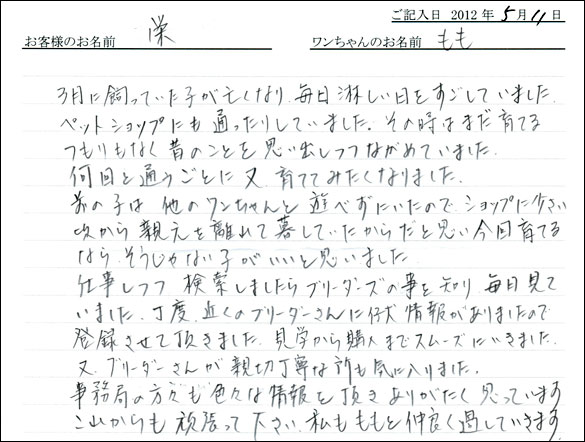 ご記入日 2012 年 5 月 11 日
お客様のお名前 栄 ワンちゃんのお名前 もも
3月に飼っていた子が亡くなり、毎日淋しい日をすごしていました。
ペットショップにも通ったりしていました。その時はまだ育てる
つもりもなく昔のことを思い出しつつながめていました。
何回と通うごとに又、育ててみたくなりました。
前の子は他のワンちゃんと遊べずにいたので、ショップに少さい
頃から親元を離れて暮していたからだと思い今回育てる
なら、そうじゃない子がいいと思いました。
仕事しつつ検索しましたらブリーダーズの事を知り毎日見て
いました。丁度、近くのブリーダーさんに仔犬情報がありましたので
登録させて頂きました。見学から購入までスムーズにいきました。
又、ブリーダーさんが親切丁寧な所も気に入りました。
事務局の方々も色々な情報を頂きありがたく思っています
これからも頑張って下さい。私もももと仲良く過していきます